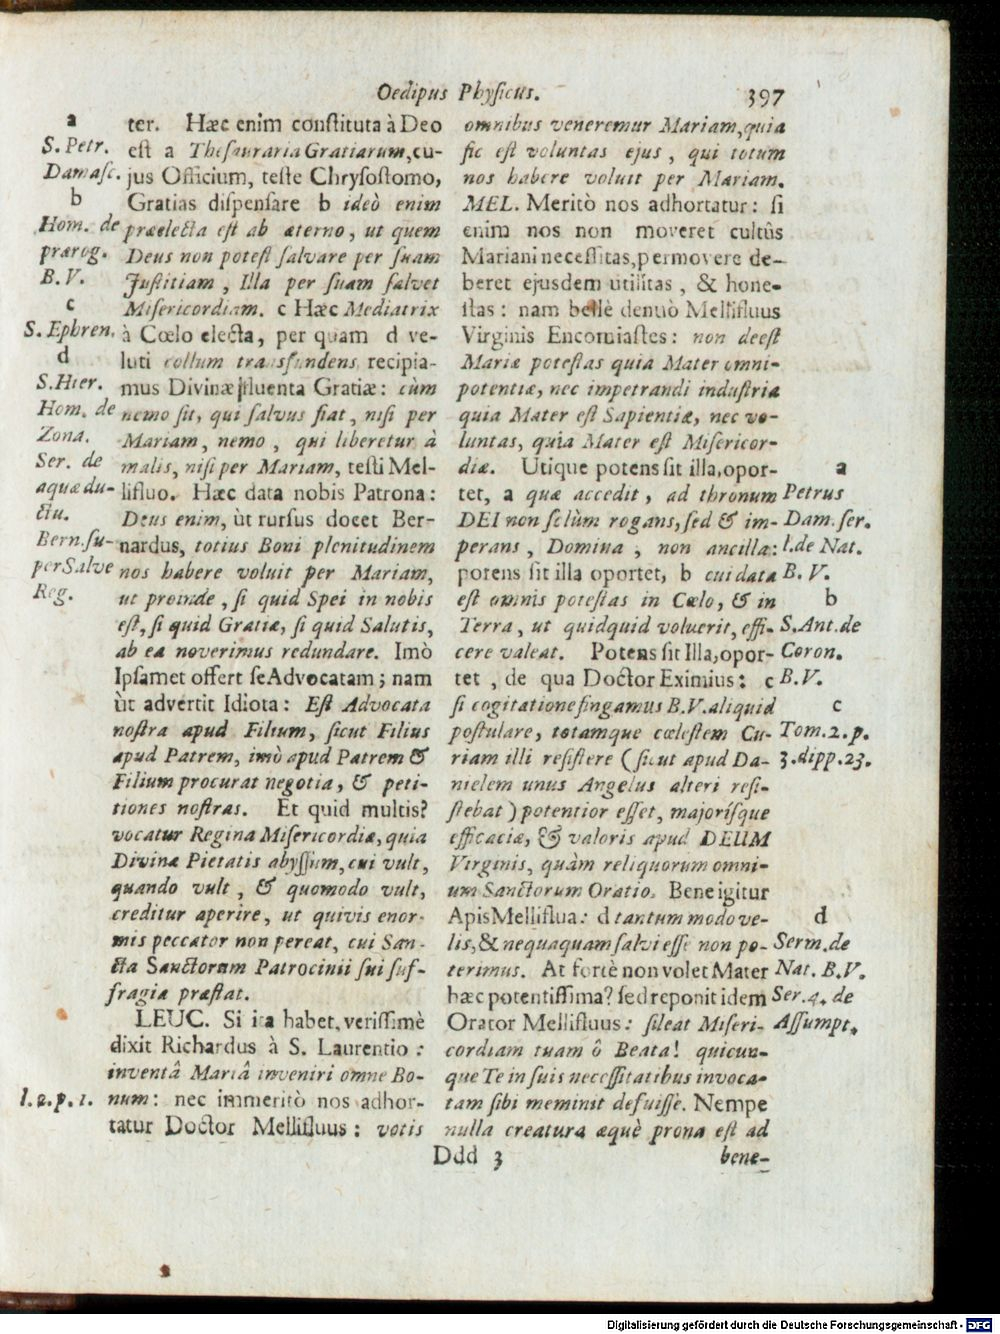 Oedipus Physicus.
397
a
S. Petr.
Damasc.
b
Hom. de
prærog.
B. V.
c
S. Ephren.
d
S. Hier.
Hom. de
Zona.
Ser. de
aquædu-
ctu.
Bern. su-
per Salve
Reg.
l. 2. p. 1.
ter. Hæc enim constituta à Deo
est a Thesauraria Gratiarum, cu-
jus Officium, teste Chrysostomo,
Gratias dispensare b ideò enim
præelecta est ab æterno, ut quem
Deus non potest salvare per suam
Justitiam, Illa per suam salvet
Misericordiam. c Hæc Mediatrix
à Cœlo electa, per quam d ve-
luti collum transfundens recipia-
mus Divinæ fluenta Gratiæ: cùm
nemo sit, qui salvus fiat, nisi per
Mariam, nemo, qui liberetur à
malis, nisi per Mariam, testi Mel-
lifluo. Hæc data nobis Patrona:
Deus enim, ùt rursus docet Ber-
nardus, totius Boni plenitudinem
nos habere voluit per Mariam,
ut proinde, si quid Spei in nobis
est, si quid Gratiæ, si quid Salutis,
ab ea noverimus redundare. Imò
Ipsamet offert se Advocatam; nam
ùt advertit Idiota: Est Advocata
nostra apud Filium, sicut Filius
apud Patrem, imò apud Patrem &
Filium procurat negotia, & peti-
tiones nostras. Et quid multis?
vocatur Regina Misericordiæ, quia
Divinæ Pietatis abyssum, cui vult,
quando vult, & quomodo vult,
creditur aperire, ut quivis enor-
mis peccator non pereat, cui San-
cta Sanctorum Patrocinii sui suf-
fragia præstat.
LEUC. Si ita habet, verissimè
dixit Richardus à S. Laurentio:
inventâ Mariâ inveniri omne Bo-
num: nec immeritò nos adhor-
tatur Doctor Mellifluus: votis
omnibus veneremur Mariam, quia
sic est voluntas ejus, qui totum
nos habere voluit per Mariam.
MEL. Meritò nos adhortatur: si
enim nos non moveret cultûs
Mariani necessitas, permovere de-
beret ejusdem utilitas, & hone-
stas: nam bellè denuò Mellifluus
Virginis Encomiastes: non deest
Mariæ potestas quia Mater omni-
potentiæ, nec impetrandi industria
quia Mater est Sapientiæ, nec vo-
luntas, quia Mater est Misericor-
diæ. Utique potens sit illa, opor-
tet, a quæ accedit, ad thronum
DEI non solùm rogans, sed & im-
perans, Domina, non ancilla:
potens sit illa oportet, b cui data
est omnis potestas in Cœlo, & in
Terra, ut quidquid voluerit, effi-
cere valeat. Potens sit Illa, opor-
tet, de qua Doctor Eximius: c
si cogitatione fingamus B. V. aliquid
postulare, totamque cœlestem Cu-
riam illi resistere (sicut apud Da-
nielem unus Angelus alteri resi-
stebat) potentior esset, majorisque
efficaciæ, & valoris apud DEUM
Virginis, quàm reliquorum omni-
um Sanctorum Oratio. Bene igitur
Apis Melliflua: d tantum modo ve-
lis, & nequaquam salvi esse non po-
terimus. At fortè non volet Mater
hæc potentissima? sed reponit idem
Orator Mellifluus: sileat Miseri-
cordiam tuam ô Beata! quicun-
que Te in suis necessitatibus invoca-
tam sibi meminit defuisse. Nempe
nulla creatura æquè prona est ad
a
Petrus
Dam. ser.
1. de Nat.
B. V.
b
S. Ant. de
Coron.
B. V.
c
Tom. 2. p.
3. dipp. 23.
d
Serm. de
Nat. B. V.
Ser. 4. de
Assumpt.
Ddd 3
bene-
Digitalisierung gefördert durch die Deutsche Forschungsgemeinschaft - DFG